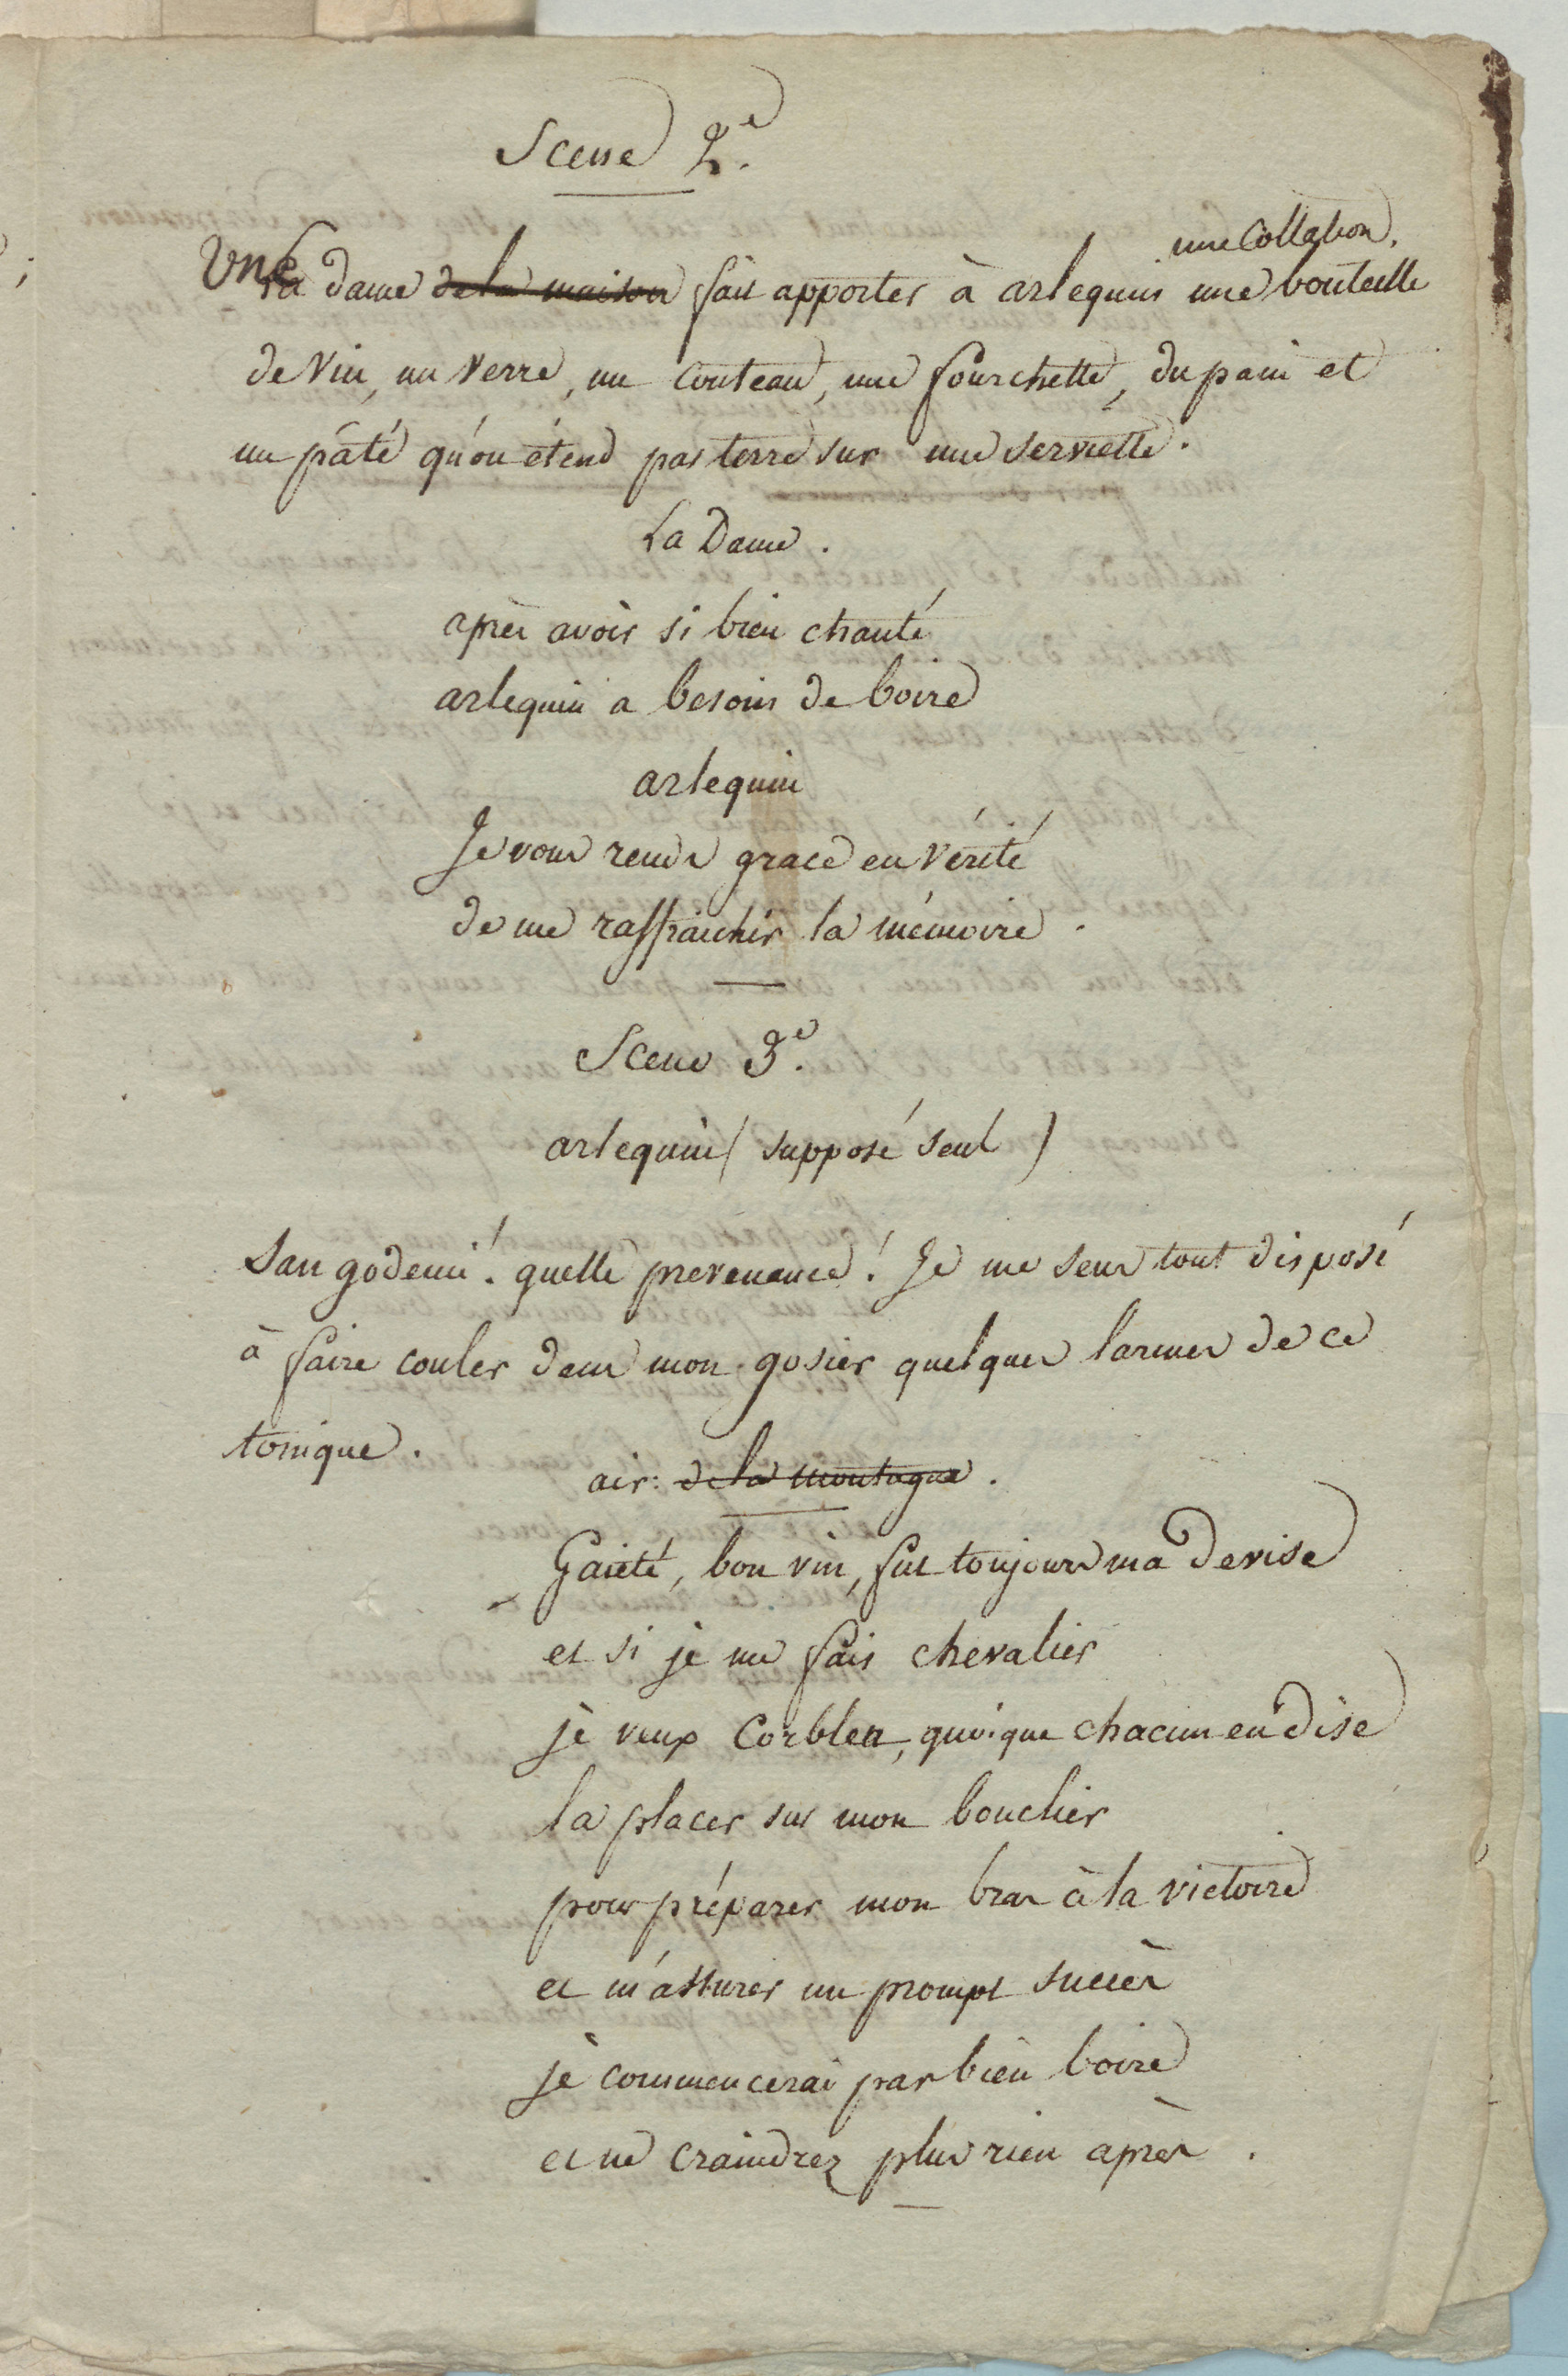 Scene 2e.
une Collation,
Une dame de la maison fait apporter à arlequin une bouteille
de Vin, un verre, un couteau, une fourchette, du pain et
un pâté qu'on étend par terre sur une serviette.
La Dame.
après avoir si bien chanté
arlequin a besoin de boire
arlequin
Je vous rends grace en vérité
de me raffraichir la mémoire.
Scene 3e.
arlequin (supposé seul)
Sangodemi! quelle prevenance! Je me sens tout disposé
à faire couler dans mon gosier quelques larmes de ce
tonique.
air: de la montagne.
Gaieté, bon vin, fut toujours ma devise
et si je me fais chevalier
je veux Corbleu, quoique chacun en dise
la placer sur mon bouclier
pour préparer mon bras à la victoire
et m'assurer un prompt succès
je commencerai par bien boire
et ne craindrez plus rien après.